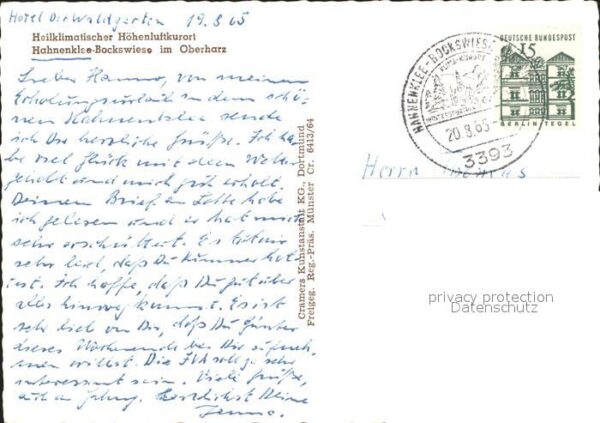 Hotel Der Waldgarten 19.8.65
Heilklimatischer Höhenluftkurort
Hahnenklee-Bockswiese im Oberharz
Lieber Hanno, von meinem
Erholungsurlaub in dem schö-
nen Hahnenklee sende
ich Dir herzliche Grüße. Ich ha-
be viel Glück mit dem Wetter
gehabt und mich gut erholt.
Deinen Brief an Lotte habe
ich gelesen und er hat mich
sehr erschüttert. Es tut mir
sehr leid, daß Du Kummer hat-
test. Ich hoffe, daß Du gut über
alles hinweg kommst. Es ist
sehr lieb von Dir, daß Du Günter
dieses Wochenende bei Dir aufneh-
men willst. Die IVA soll ja sehr
interessant sein. Viele Grüße,
auch an Herzlichst Deine
Cramers Kunstanstalt KG., Dortmund
Freigeg. Reg.-Präs. Münster Cr. 6413/64
HAHNENKLEE-BOCKSWIESE
20.8.65
3393
DEUTSCHE BUNDESPOST
15
BERLIN-TEGEL
Herrn
privacy protection
Datenschutz